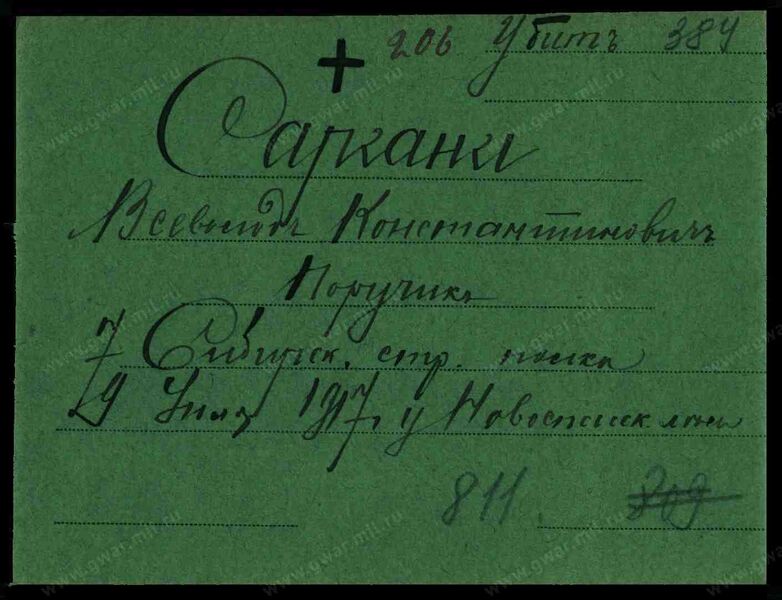 + 206 Убитъ 384
Саркани
Всеволодъ Константиновичъ
Поручикъ
7 Сибирск. стр. полка
9 Іюля 1917, у Новоспасск
811 309
www.gwar.mil.ru